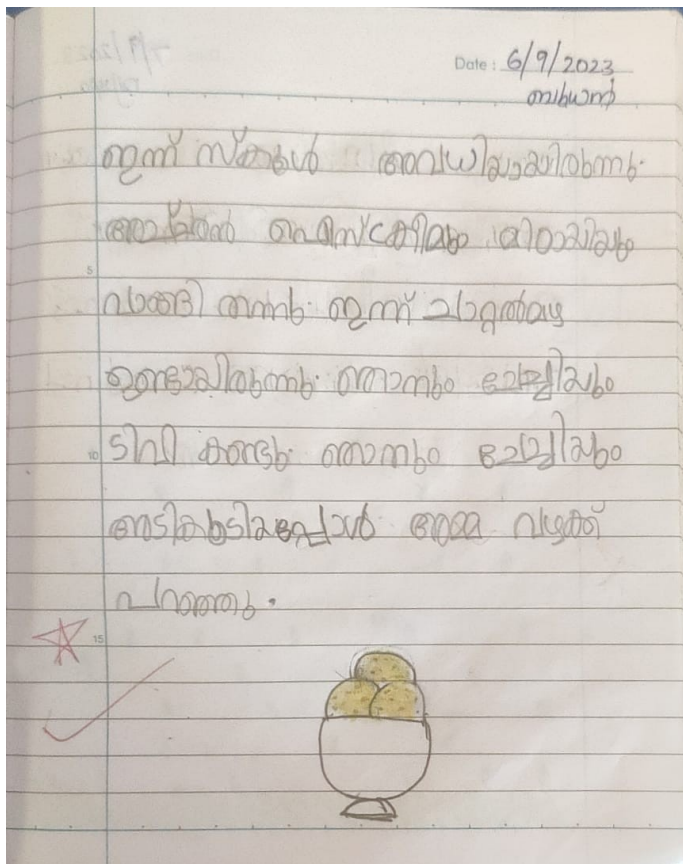 Date: 6/9/2023
ബുധൻ
ഇന്ന് സ്കൂൾ അവധിയായിരുന്നു.
അച്ഛൻ ഐസ്ക്രീമും മിഠായിയും
വാങ്ങി തന്നു. ഇന്ന് ചാറ്റൽമഴ
ഉണ്ടായിരുന്നു. ഞാനും ചേച്ചിയും
5
ടിവി കണ്ടു. ഞാനും ചേച്ചിയും
10
അടികൂടിയപ്പോൾ അമ്മ വഴക്ക്
പറഞ്ഞു.
15